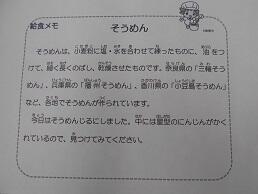 給食メモ
そうめん
そうめんは、小麦粉に塩・水を合わせて練ったものに、油をつ
けて、細く長くのばし、乾燥させたものです。奈良県の「三輪そう
めん」、兵庫県の「播州そうめん」、香川県の「小豆島そうめん」
など、各地でそうめんが作られています。
今日はそうめんじるにしました。中には星型のにんじんがかく
れているので、見つけてみてください。